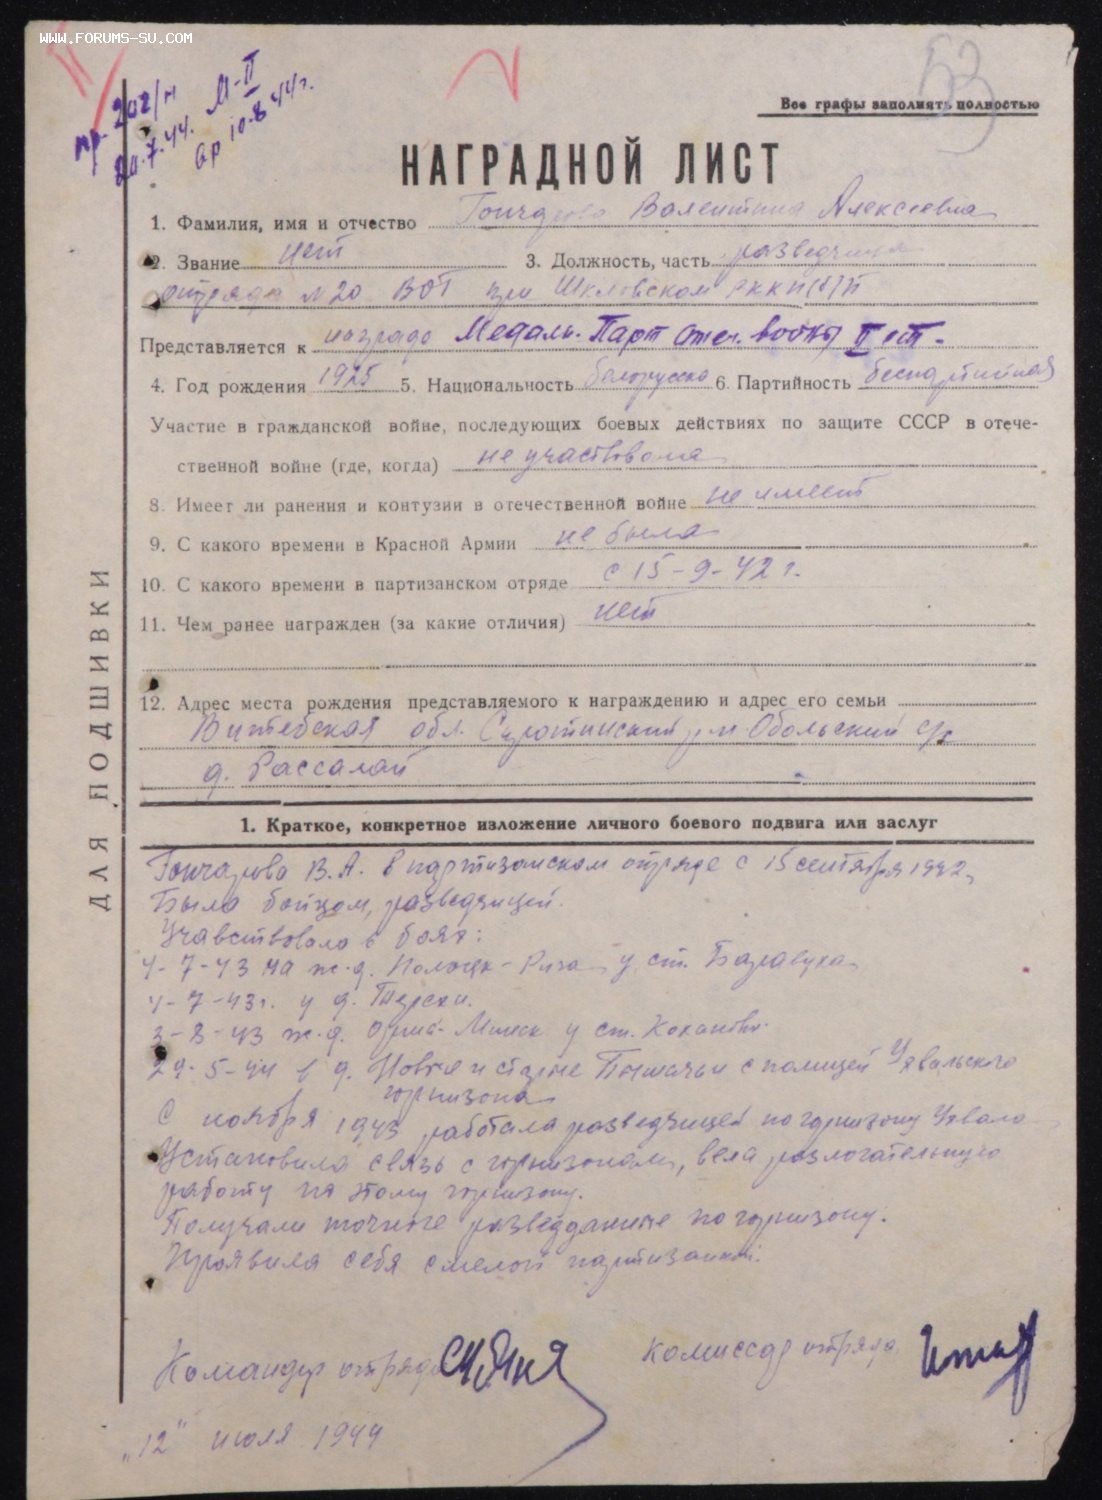 WWW.FORUMS-SU.COM
пр. 202/н М-II
20.7.44. 10-8 44 г.
53
Все графы заполнять полностью
НАГРАДНОЙ ЛИСТ
1. Фамилия, имя и отчество Гончарова Валентина Алексеевна
2. Звание нет 3. Должность, часть разведчица
отряда №20 ВОГ при Шкловском РККП(б)Б
Представляется к награде Медаль. Парт Отеч. войны II ст.
4. Год рождения 1925 5. Национальность белорусска 6. Партийность беспартийная
Участие в гражданской войне, последующих боевых действиях по защите СССР в отече-
ственной войне (где, когда) не участвовала
8. Имеет ли ранения и контузии в отечественной войне не имеет
9. С какого времени в Красной Армии не была
10. С какого времени в партизанском отряде с 15-9-42 г.
11. Чем ранее награжден (за какие отличия) нет
12. Адрес места рождения представляемого к награждению и адрес его семьи
Витебская обл. Сиротинский р-н Обольский с/с
д. Рассалай
1. Краткое, конкретное изложение личного боевого подвига или заслуг
Гончарова В.А. в партизанском отряде с 15 сентября 1942,
Была бойцом, разведчицей.
Учавствовала в боях:
4-7-43 на ж.д. Полоцк - Рига у ст. Баравуха
4-7-43 г. у д.
3-8-43 ж.д. Орша-Минск у ст. Коханово.
29-5-44 в д. Новые и старые с полицей Ухвальского
гарнизона
С ноября 1943 работала разведчицей по гарнизону Ухвала
Установила связь с гарнизоном, вела разлогательную
работу по этому гарнизону.
Получали точные разведданные по гарнизону.
Проявила себя смелой партизанкой.
Командир отряда Комиссар отряда
„12" июля 1944
ДЛЯ ПОДШИВКИ